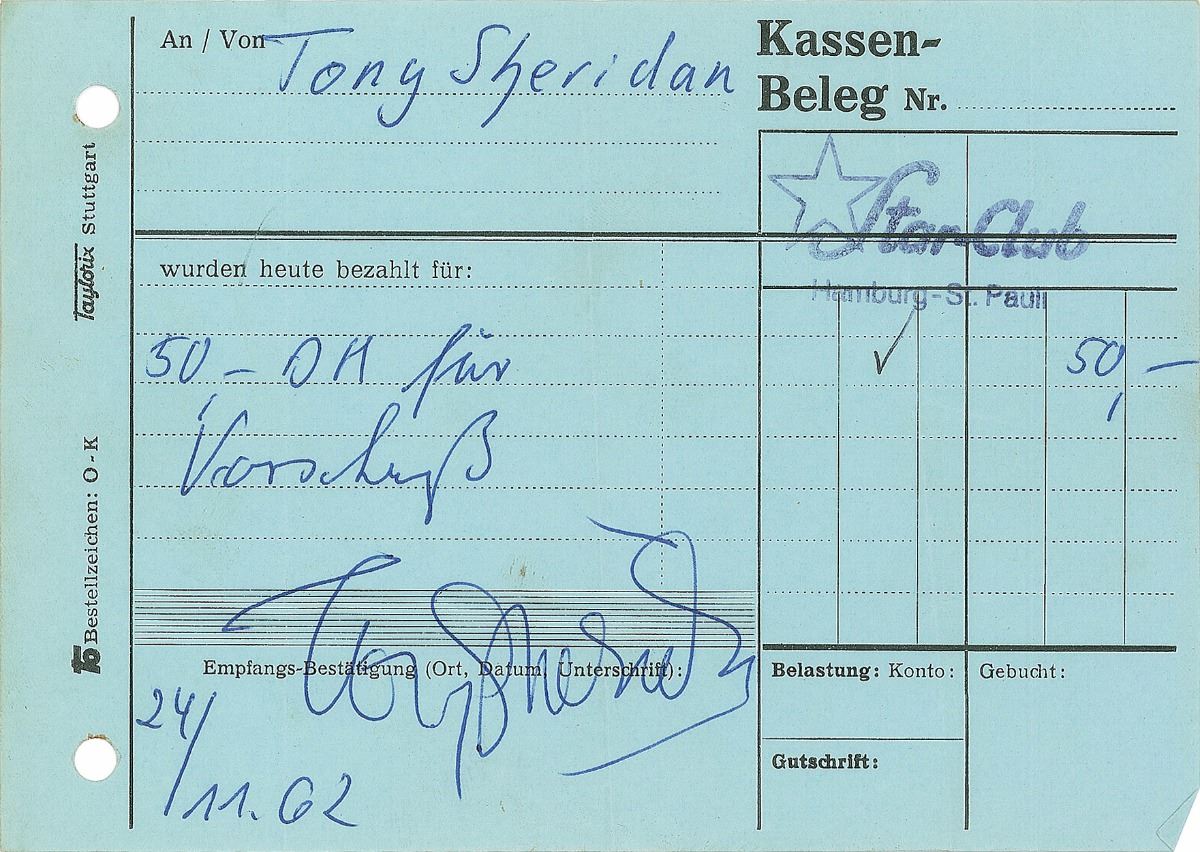 An / Von Tony Sheridan
Kassen-
Beleg Nr.
Star-Club
Hamburg-St. Pauli
wurden heute bezahlt für:
50,- DM für
50,-
Vorschuß
Tony Sheridan
Empfangs-Bestätigung (Ort, Datum, Unterschrift):
24/11.62
Belastung: Konto:
Gebucht:
Gutschrift:
Taylorix Stuttgart
Bestellzeichen: O-K